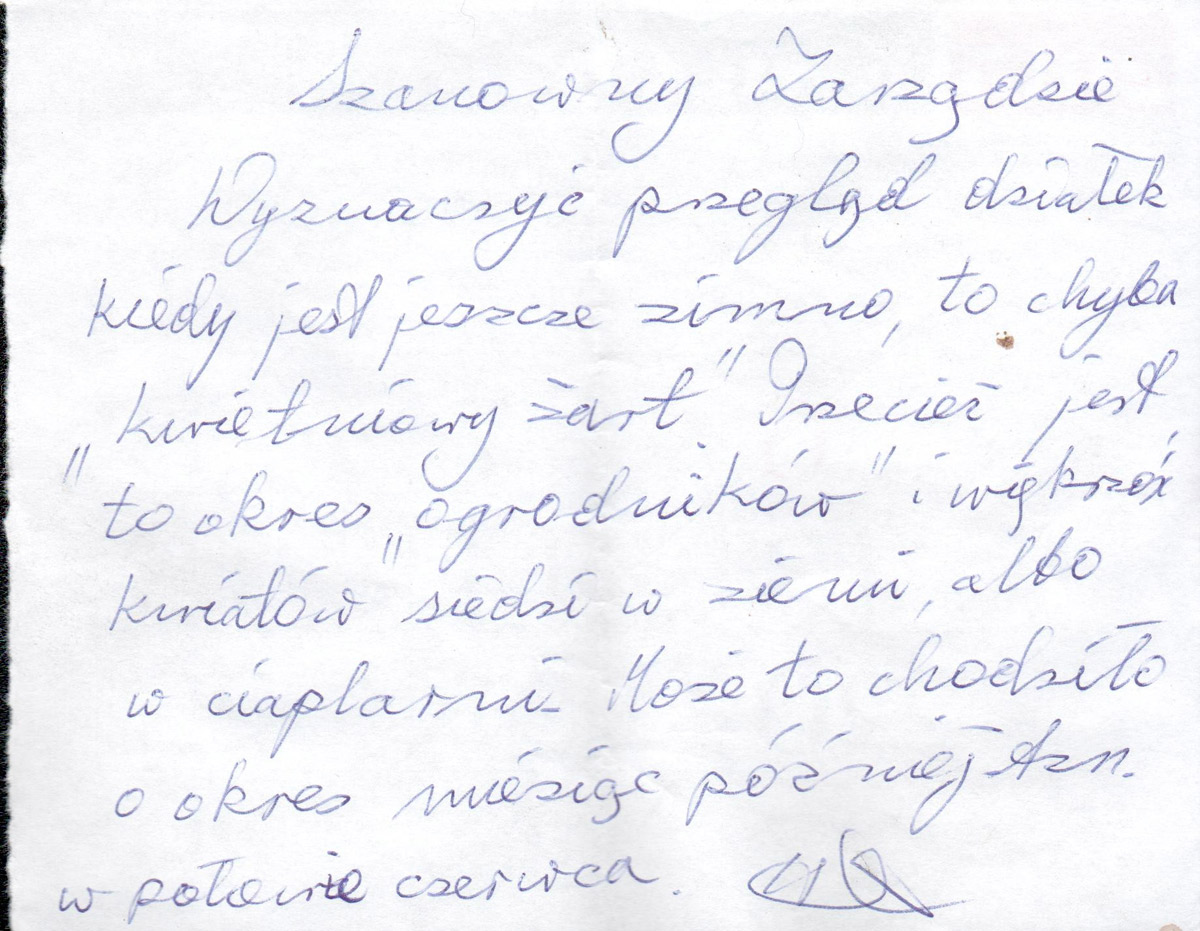 Szanowny Zarządzie
Wyznaczyć przegląd działek
kiedy jest jeszcze zimno, to chyba
„kwietniowy żart" Przecież jest
to okres „ogrodników" i większość
kwiatów siedzi w ziemi, albo
w cieplarni. Może to chodziło
o okres miesiąc później tzn.
w połowie czerwca.